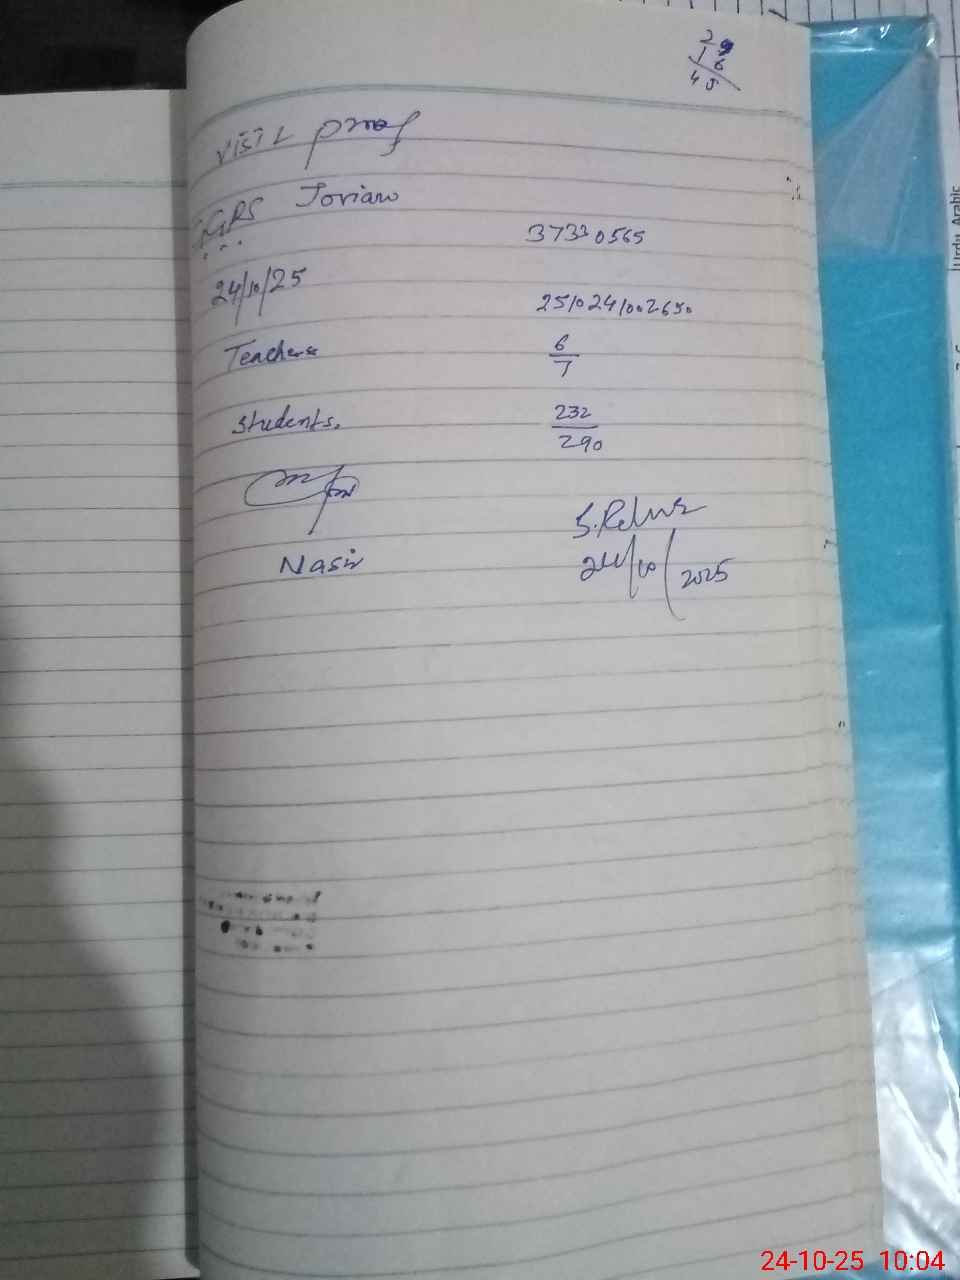 29
16
45
Visit proof
GGPS Joriaw
37330565
24/10/25
251024/002650
Teachers
6/7
Students.
232/290
Nasir
24/10/2025
Urdu, Arabic
24-10-25 10:04